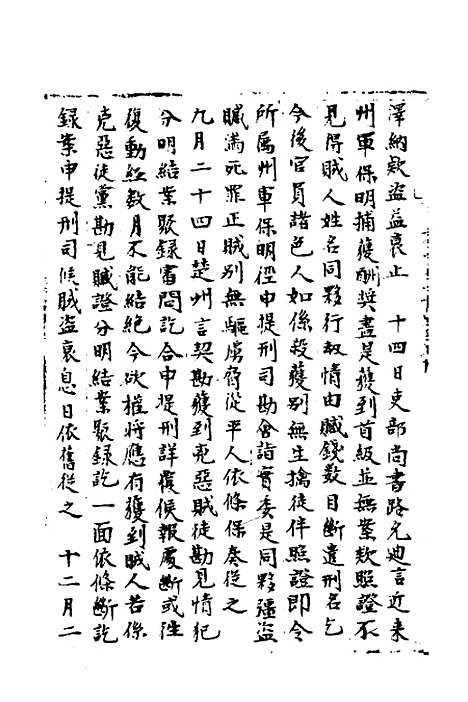 澤納欵盜益衰止　十四日吏部尚書路允迪言近来
州軍保明捕獲酬奨盡是獲到首級並無案欵照證不
見得賊人姓名同夥行刼情由贓錢数目斷遣刑名乞
今後官員諸色人如係殺獲别無生擒徒伴照證即令
所属州軍保明徑申提刑司勘會詣實委是同夥彊盜
贓滿死罪正賊别無驅虜脅從平人依條保奏從之
九月二十四日楚州言契勘獲到兇惡賊徒勘見情犯
分明結案録書問訖合申提刑詳覆候報處斷或往
復動經数月不能結絶今欲權將應有獲到賊人若係
兇惡徒黨勘見贓證分明結案録訖一面依條斷訖
録案申提刑司候賊盜衰息日依舊從之　十二月二